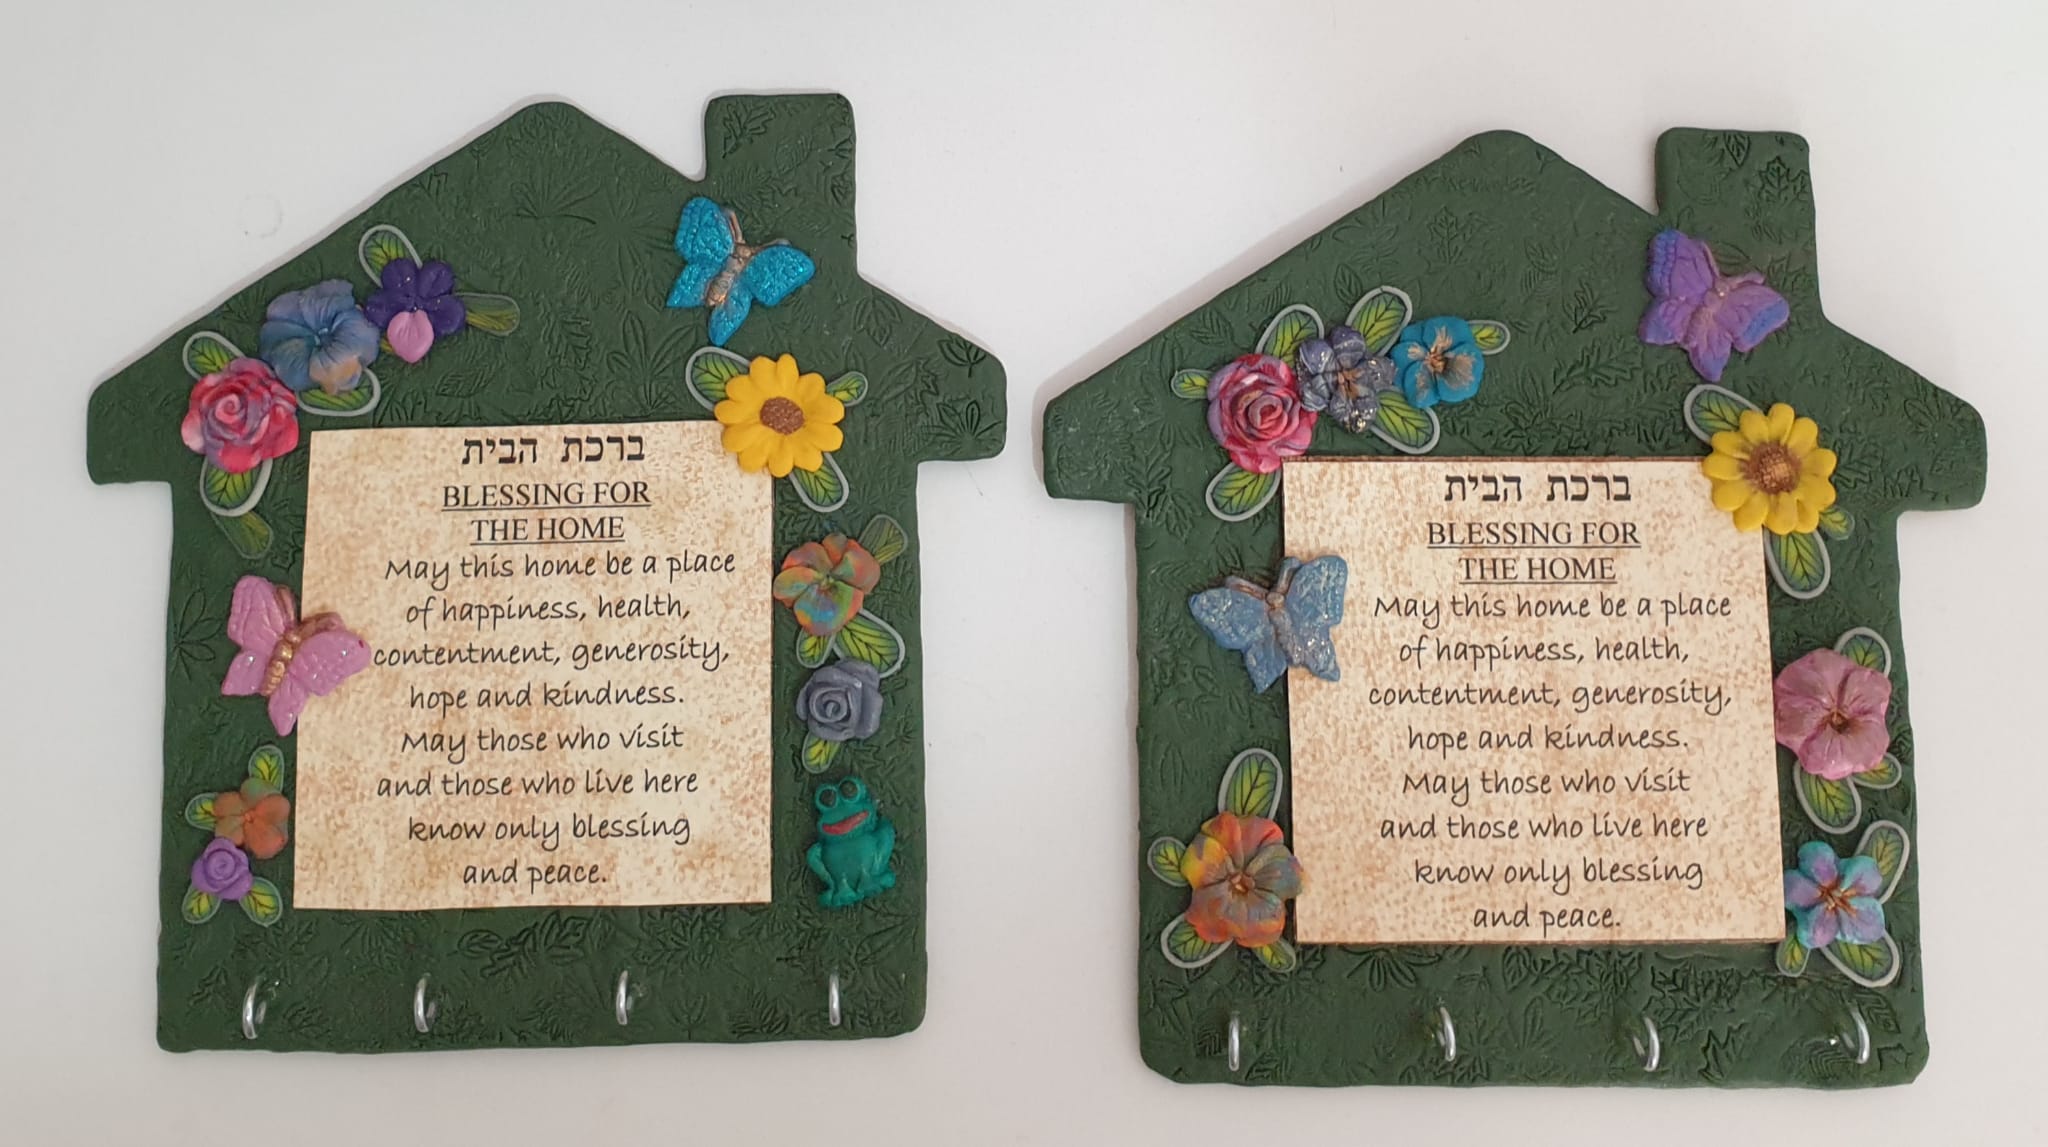 ברכת הבית
BLESSING FOR
THE HOME
May this home be a place
of happiness, health,
contentment, generosity,
hope and kindness.
May those who visit
and those who live here
know only blessing
and peace.
ברכת הבית
BLESSING FOR
THE HOME
May this home be a place
of happiness, health,
contentment, generosity,
hope and kindness.
May those who visit
and those who live here
know only blessing
and peace.